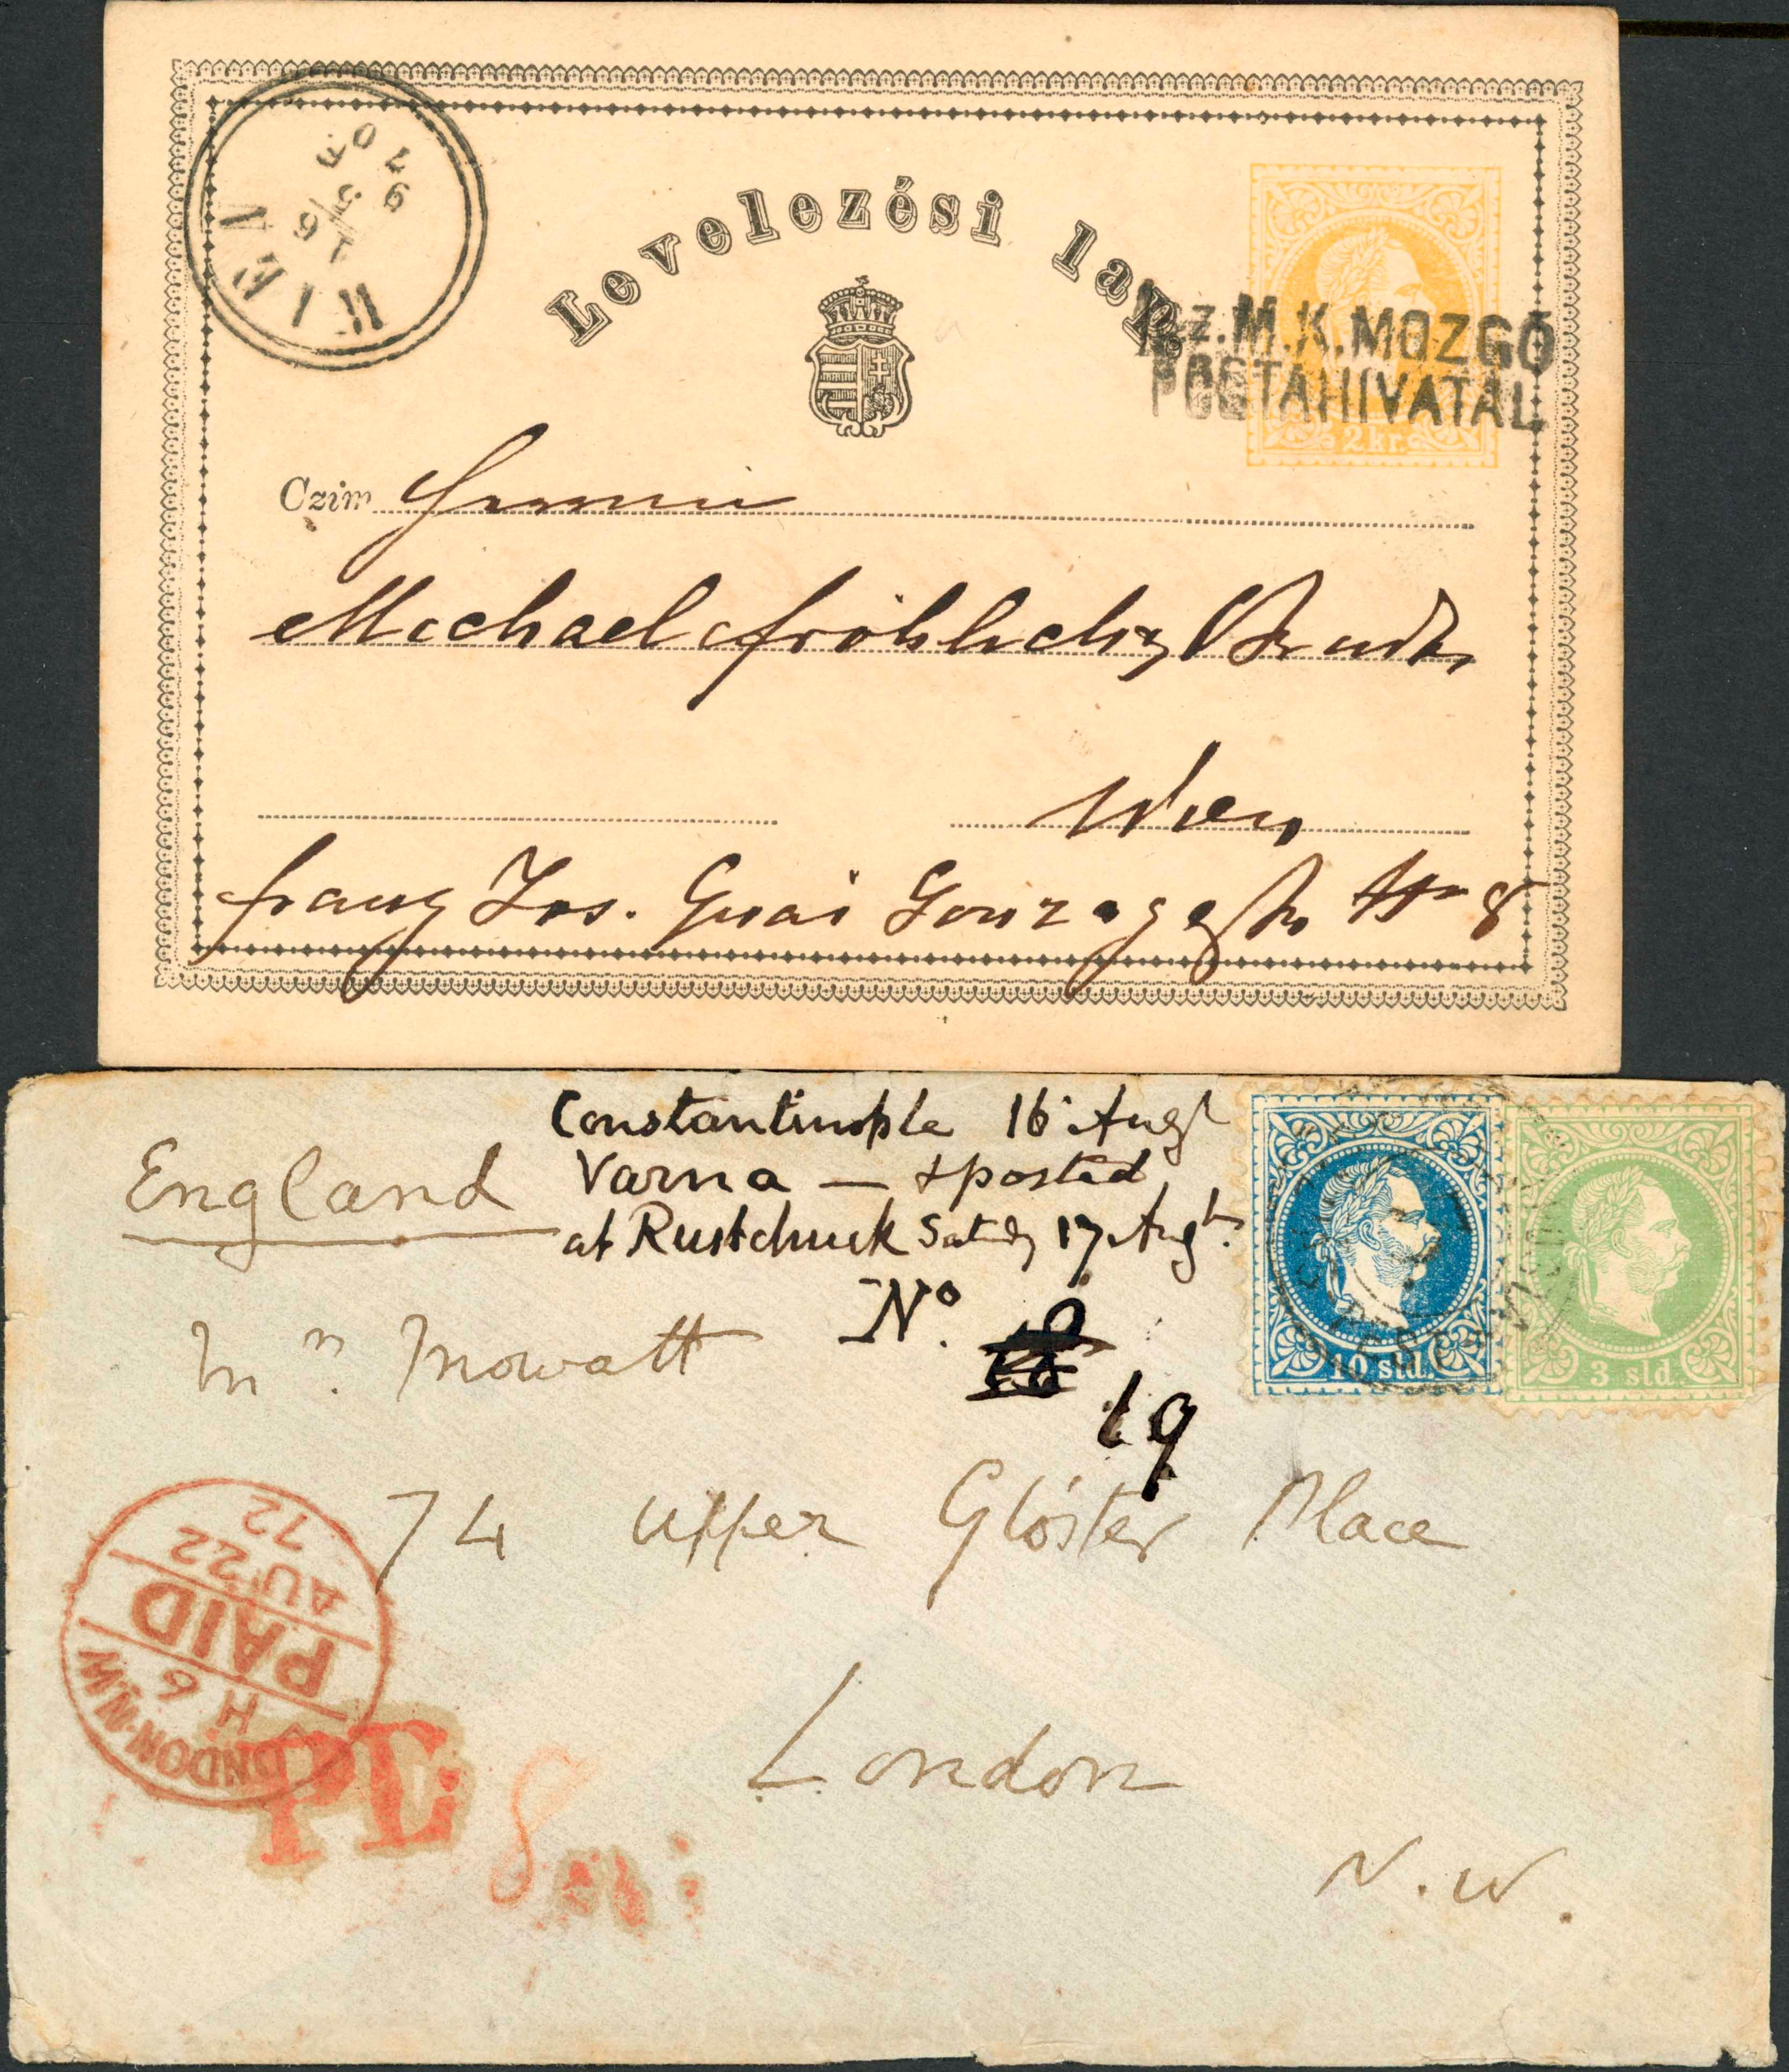 Levelezési lap.
sz. M. K. MOZGÓ
POSTAHIVATAL
2 kr.
WIEN
Czim
Michael Fröhlich's
Wien
Franz Jos. Quai Gonzagag No 8
Constantinople 16 Augt
England
Varna — & posted
at Rustchuck Satdy 17 Augt.
No.
19
10 sld.
3 sld.
Mowatt
74 Upper Glóster Place
London
N.W.
LONDON·N.W
H 6
PAID
AU 22
72
PD
8